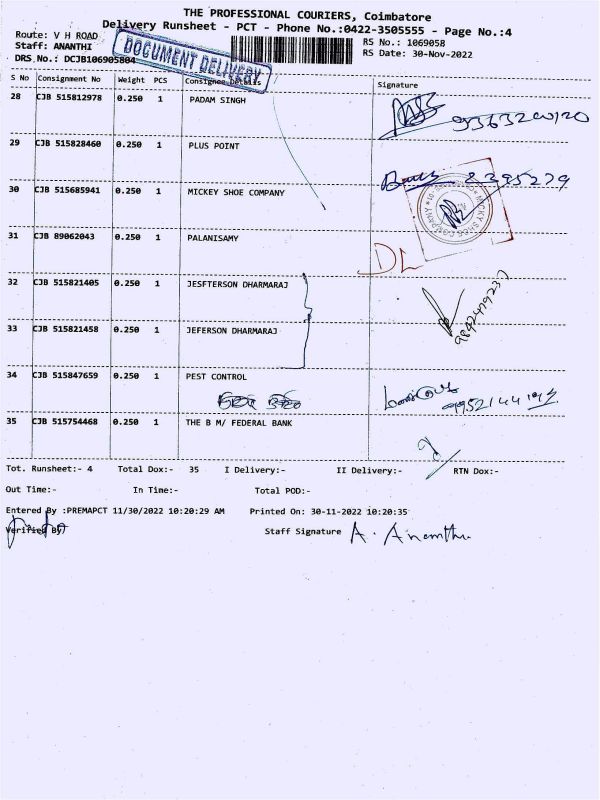 THE PROFESSIONAL COURIERS, Coimbatore
Delivery Runsheet - PCT - Phone No.:0422-3505555 - Page No.:4
Route: V H ROAD
RS No.: 1069058
Staff: ANANTHI
RS Date: 30-Nov-2022
DRS No.: DCJB106905804
DOCUMENT DELIVERY
S No Consignment No Weight PCS Consignee Details Signature
28 CJB 515812978 0.250 1 PADAM SINGH
29 CJB 515828460 0.250 1 PLUS POINT
30 CJB 515685941 0.250 1 MICKEY SHOE COMPANY
8395279
31 CJB 89062043 0.250 1 PALANISAMY
DL
32 CJB 515821405 0.250 1 JESFTERSON DHARMARAJ
33 CJB 515821458 0.250 1 JEFERSON DHARMARAJ
34 CJB 515847659 0.250 1 PEST CONTROL
35 CJB 515754468 0.250 1 THE B M/ FEDERAL BANK
Tot. Runsheet:- 4 Total Dox:- 35 I Delivery:- II Delivery:- RTN Dox:-
Out Time:- In Time:- Total POD:-
Entered By :PREMAPCT 11/30/2022 10:20:29 AM Printed On: 30-11-2022 10:20:35
Verified By Staff Signature A. Ananthi